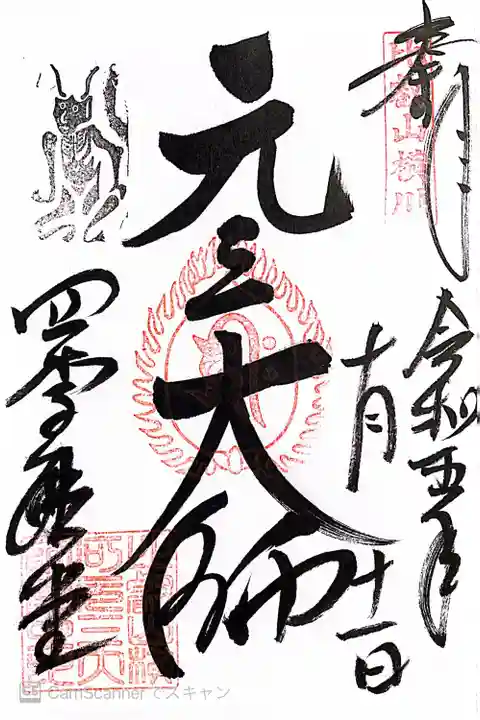 奉拝
比叡山横川
令和五年
十月
十一日
元三大師
四季講堂
CamScannerでスキャン